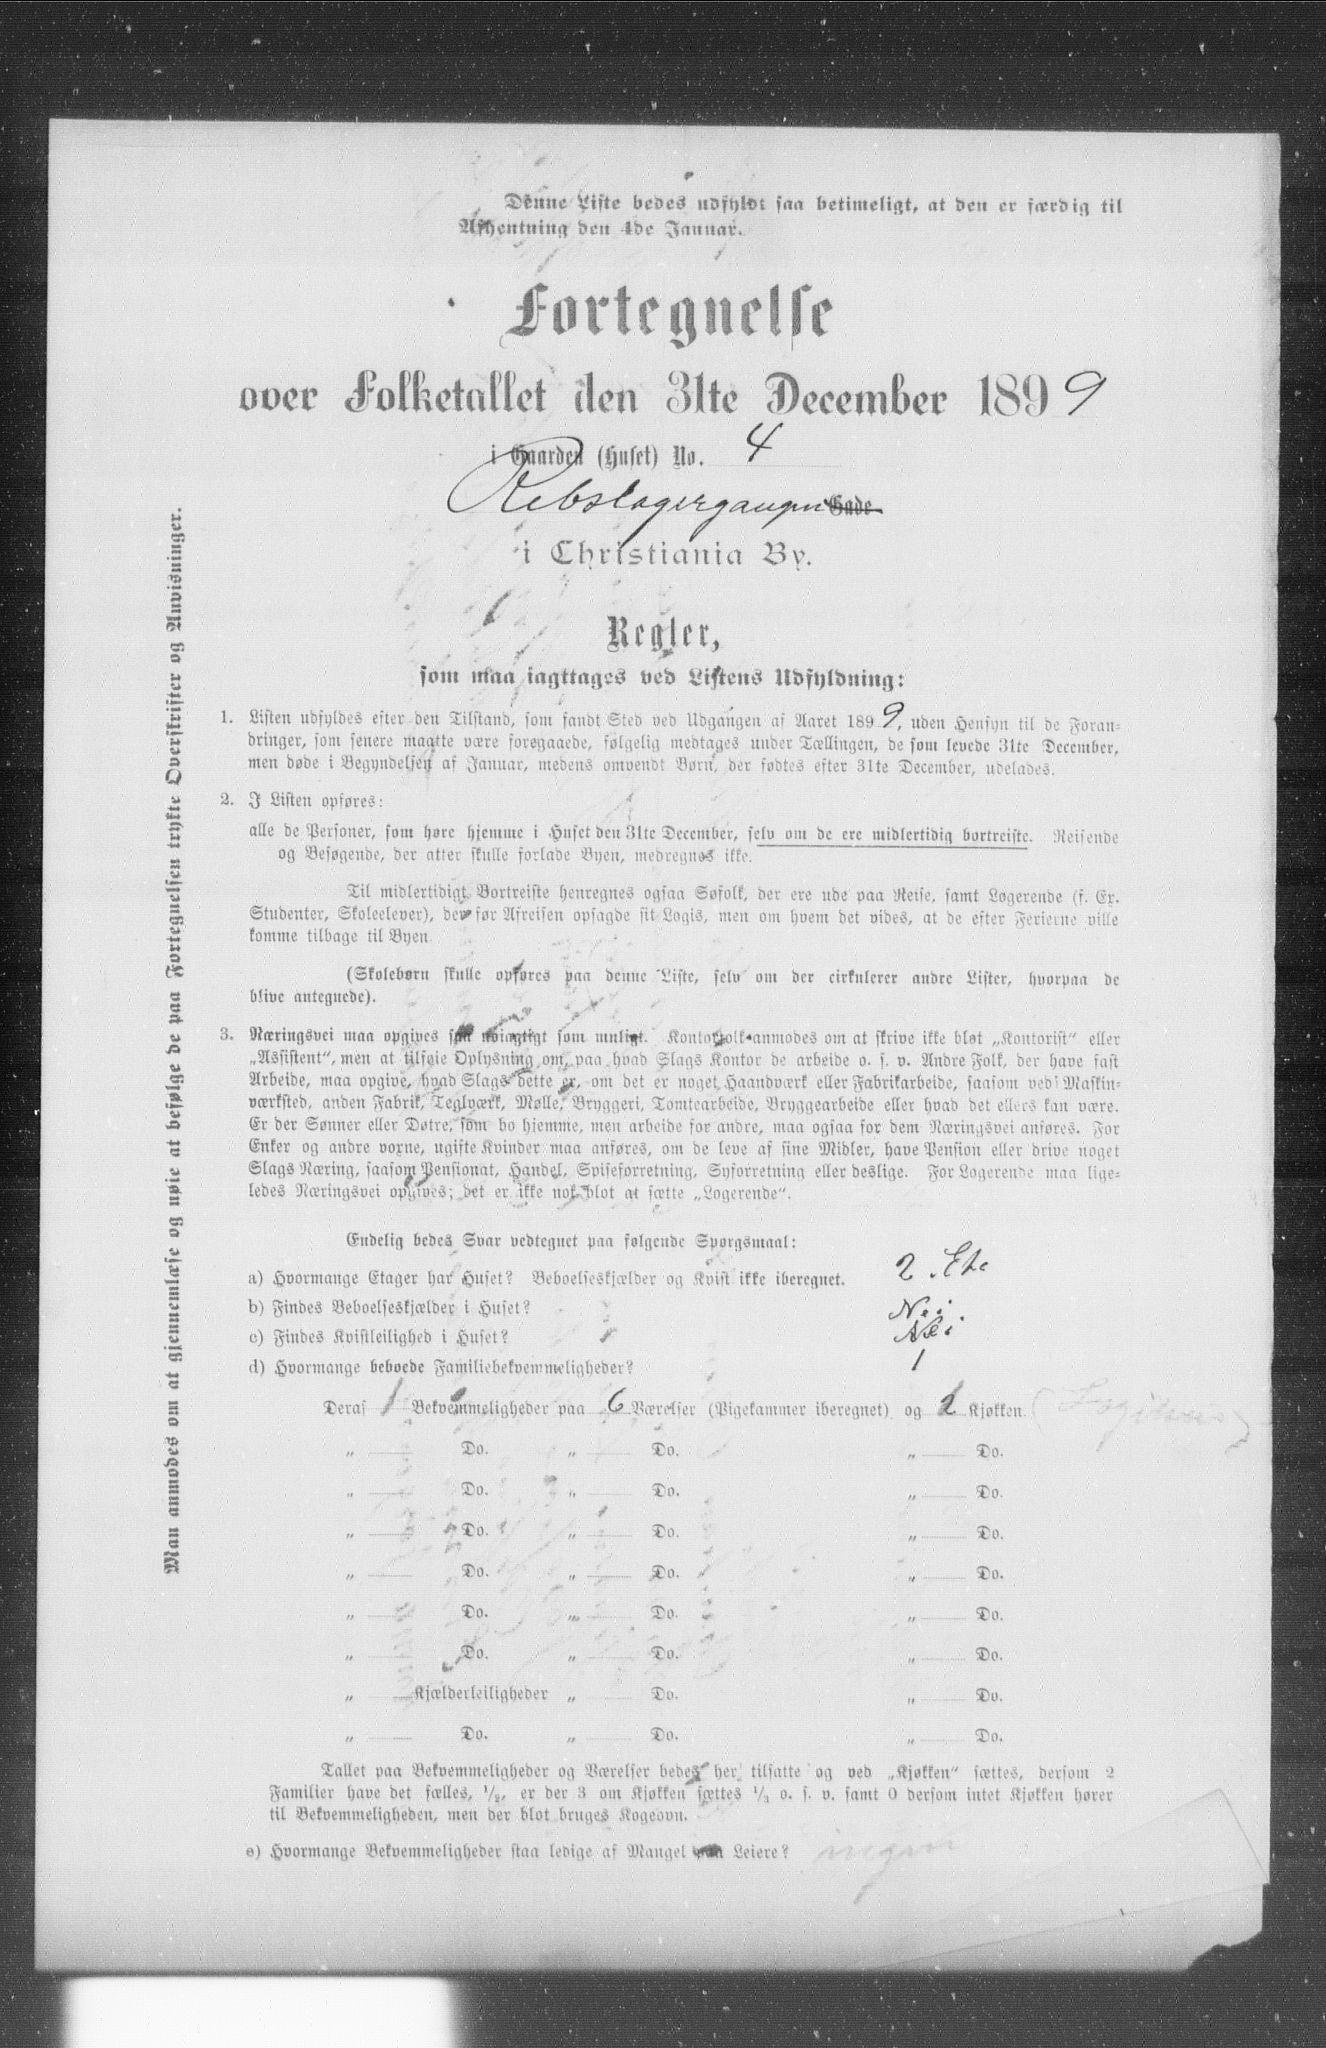 Denne Liste bedes udfyldt saa betimeligt, at den er færdig til
Afhentning den 4de Januar.
Fortegnelse
over Folketallet den 31te December 1899
i Gaarden (Huset) No. 4
Rebslagergangen Gade
i Christiania By.
Regler,
som maa iagttages ved Listens Udfyldning:
1. Listen udfyldes efter den Tilstand, som fandt Sted ved Udgangen af Aaret 1899, uden Hensyn til de Foran-
dringer, som senere maatte være foregaaede, følgelig medtages under Tællingen, de som levede 31te December,
men døde i Begyndelsen af Januar, medens omvendt Børn, der fødtes efter 31te December, udelades.
2. I Listen opføres:
alle de Personer, som høre hjemme i Huset den 31te December, selv om de ere midlertidig bortreiste. Reisende
og Besøgende, der atter skulle forlade Byen, medregnes ikke.
Til midlertidigt Bortreiste henregnes ogsaa Søfolk, der ere ude paa Reise, samt Logerende (f. Ex.
Studenter, Skoleelever), der før Afreisen opsagde sit Logis, men om hvem det vides, at de efter Ferierne ville
komme tilbage til Byen.
(Skolebørn skulle opføres paa denne Liste, selv om der cirkulerer andre Lister, hvorpaa de
blive antegnede).
3. Næringsvei maa opgives saa nøiagtigt som muligt. Kontorfolk anmodes om at skrive ikke blot „Kontorist“ eller
„Assistent“, men at tilføie Oplysning om, paa hvad Slags Kontor de arbeide o. s. v. Andre Folk, der have fast
Arbeide, maa opgive, hvad Slags dette er, om det er noget Haandværk eller Fabrikarbeide, saasom ved Maskin-
værksted, anden Fabrik, Teglværk, Mølle, Bryggeri, Tomtearbeide, Bryggearbeide eller hvad det ellers kan være.
Er der Sønner eller Døtre, som bo hjemme, men arbeide for andre, maa ogsaa for dem Næringsvei anføres. For
Enker og andre voxne, ugifte Kvinder maa anføres, om de leve af sine Midler, have Pension eller drive noget
Slags Næring, saasom Pensionat, Handel, Spiseforretning, Syforretning eller deslige. For Logerende maa lige-
ledes Næringsvei opgives; det er ikke nok blot at sætte „Logerende“.
Endelig bedes Svar vedtegnet paa følgende Spørgsmaal:
a) Hvormange Etager har Huset? Beboelseskjælder og Kvist ikke iberegnet. 2 Etc
b) Findes Beboelseskjælder i Huset? Nei
c) Findes Kvistleilighed i Huset? Nei
d) Hvormange beboede Familiebekvemmeligheder? 1
Deraf 1 Bekvemmeligheder paa 6 Værelser (Pigekammer iberegnet) og 2 Kjøkken.
„ Do. „ Do. „ Do.
„ Do. „ Do. „ Do.
„ Do. „ Do. „ Do.
„ Do. „ Do. „ Do.
„ Do. „ Do. „ Do.
„ Do. „ Do. „ Do.
„ Kjælderleiligheder „ Do. „ Do.
„ Do. „ Do. „ Do.
Tallet paa Bekvemmeligheder og Værelser bedes her tilsatte og ved „Kjøkken“ sættes, dersom 2
Familier have det fælles, 1/2, er der 3 om Kjøkken sættes 1/3 o. s. v. samt 0 dersom intet Kjøkken hører
til Bekvemmeligheden, men der blot bruges Kogeovn.
e) Hvormange Bekvemmeligheder staa ledige af Mangel paa Leiere? ingen
Man anmodes om at gjennemlæse og nøie at befølge de paa Fortegnelsen trykte Overskrifter og Anvisninger.